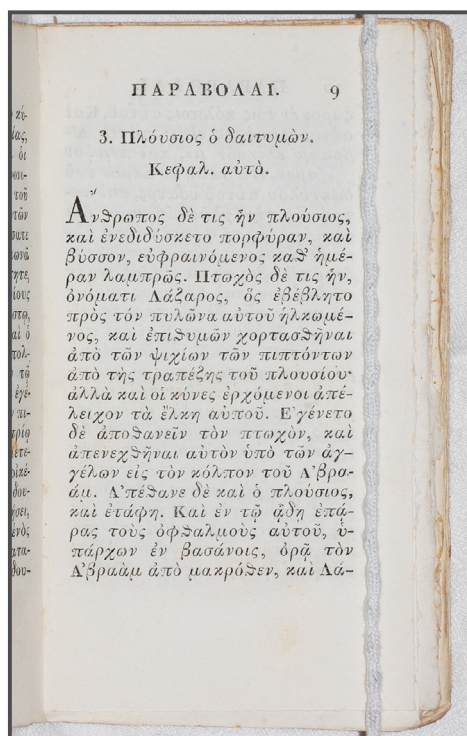 ΠΑΡΑΒΟΛΑΙ. 9
3. Πλούσιος ὁ δαιτυμών.
Κεφαλ. αὐτὸ.
Ἄνθρωπος δὲ τις ἠν πλούσιος,
καὶ ἐνεδιδύσκετο πορφύραν, καὶ
βύσσον, εὐφραινόμενος καθ' ἡμέ-
ραν λαμπρῶς. Πτωχὸς δὲ τις ἠν,
ὀνόματι Λάζαρος, ὃς ἐβέβλητο
πρὸς τὸν πυλῶνα αὐτοῦ ἡλκωμέ-
νος, καὶ ἐπιθυμῶν χορτασθῆναι
ἀπὸ τῶν ψιχίων τῶν πιπτόντων
ἀπὸ τῆς τραπέζης τοῦ πλουσίου·
ἀλλὰ καὶ οἱ κύνες ἐρχόμενοι ἀπέ-
λειχον τὰ ἕλκη αὐποῦ. Ἐγένετο
δὲ ἀποθανεῖν τὸν πτωχὸν, καὶ
ἀπενεχθῆναι αὐτὸν ὑπὸ τῶν ἀγ-
γέλων εἰς τὸν κόλπον τοῦ Ἀβρα-
άμ. Ἀπέθανε δὲ καὶ ὁ πλούσιος,
καὶ ἐτάφη. Καὶ ἐν τῷ ᾅδη ἐπά-
ρας τοὺς ὀφθαλμοὺς αὐτοῦ, ὑ-
πάρχων ἐν βασάνοις, ὁρᾷ τὸν
Ἀβραὰμ ἀπὸ μακρόθεν, καὶ Λά-